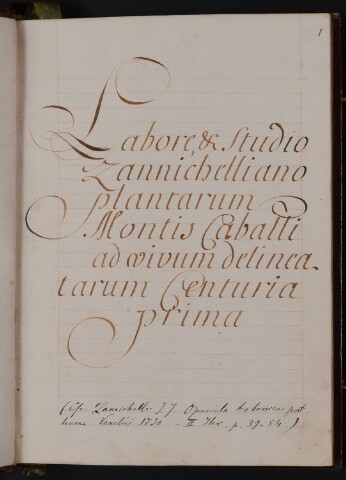 1
Labore, & Studio
Zannichelliano
plantarum
Montis Caballi
ad vivum delinea-
tarum Centuria
prima
(Cfr. Zannichelli J. J. Opuscula botanica post-
huma Venetiis 1730 - II. p. 39-54)